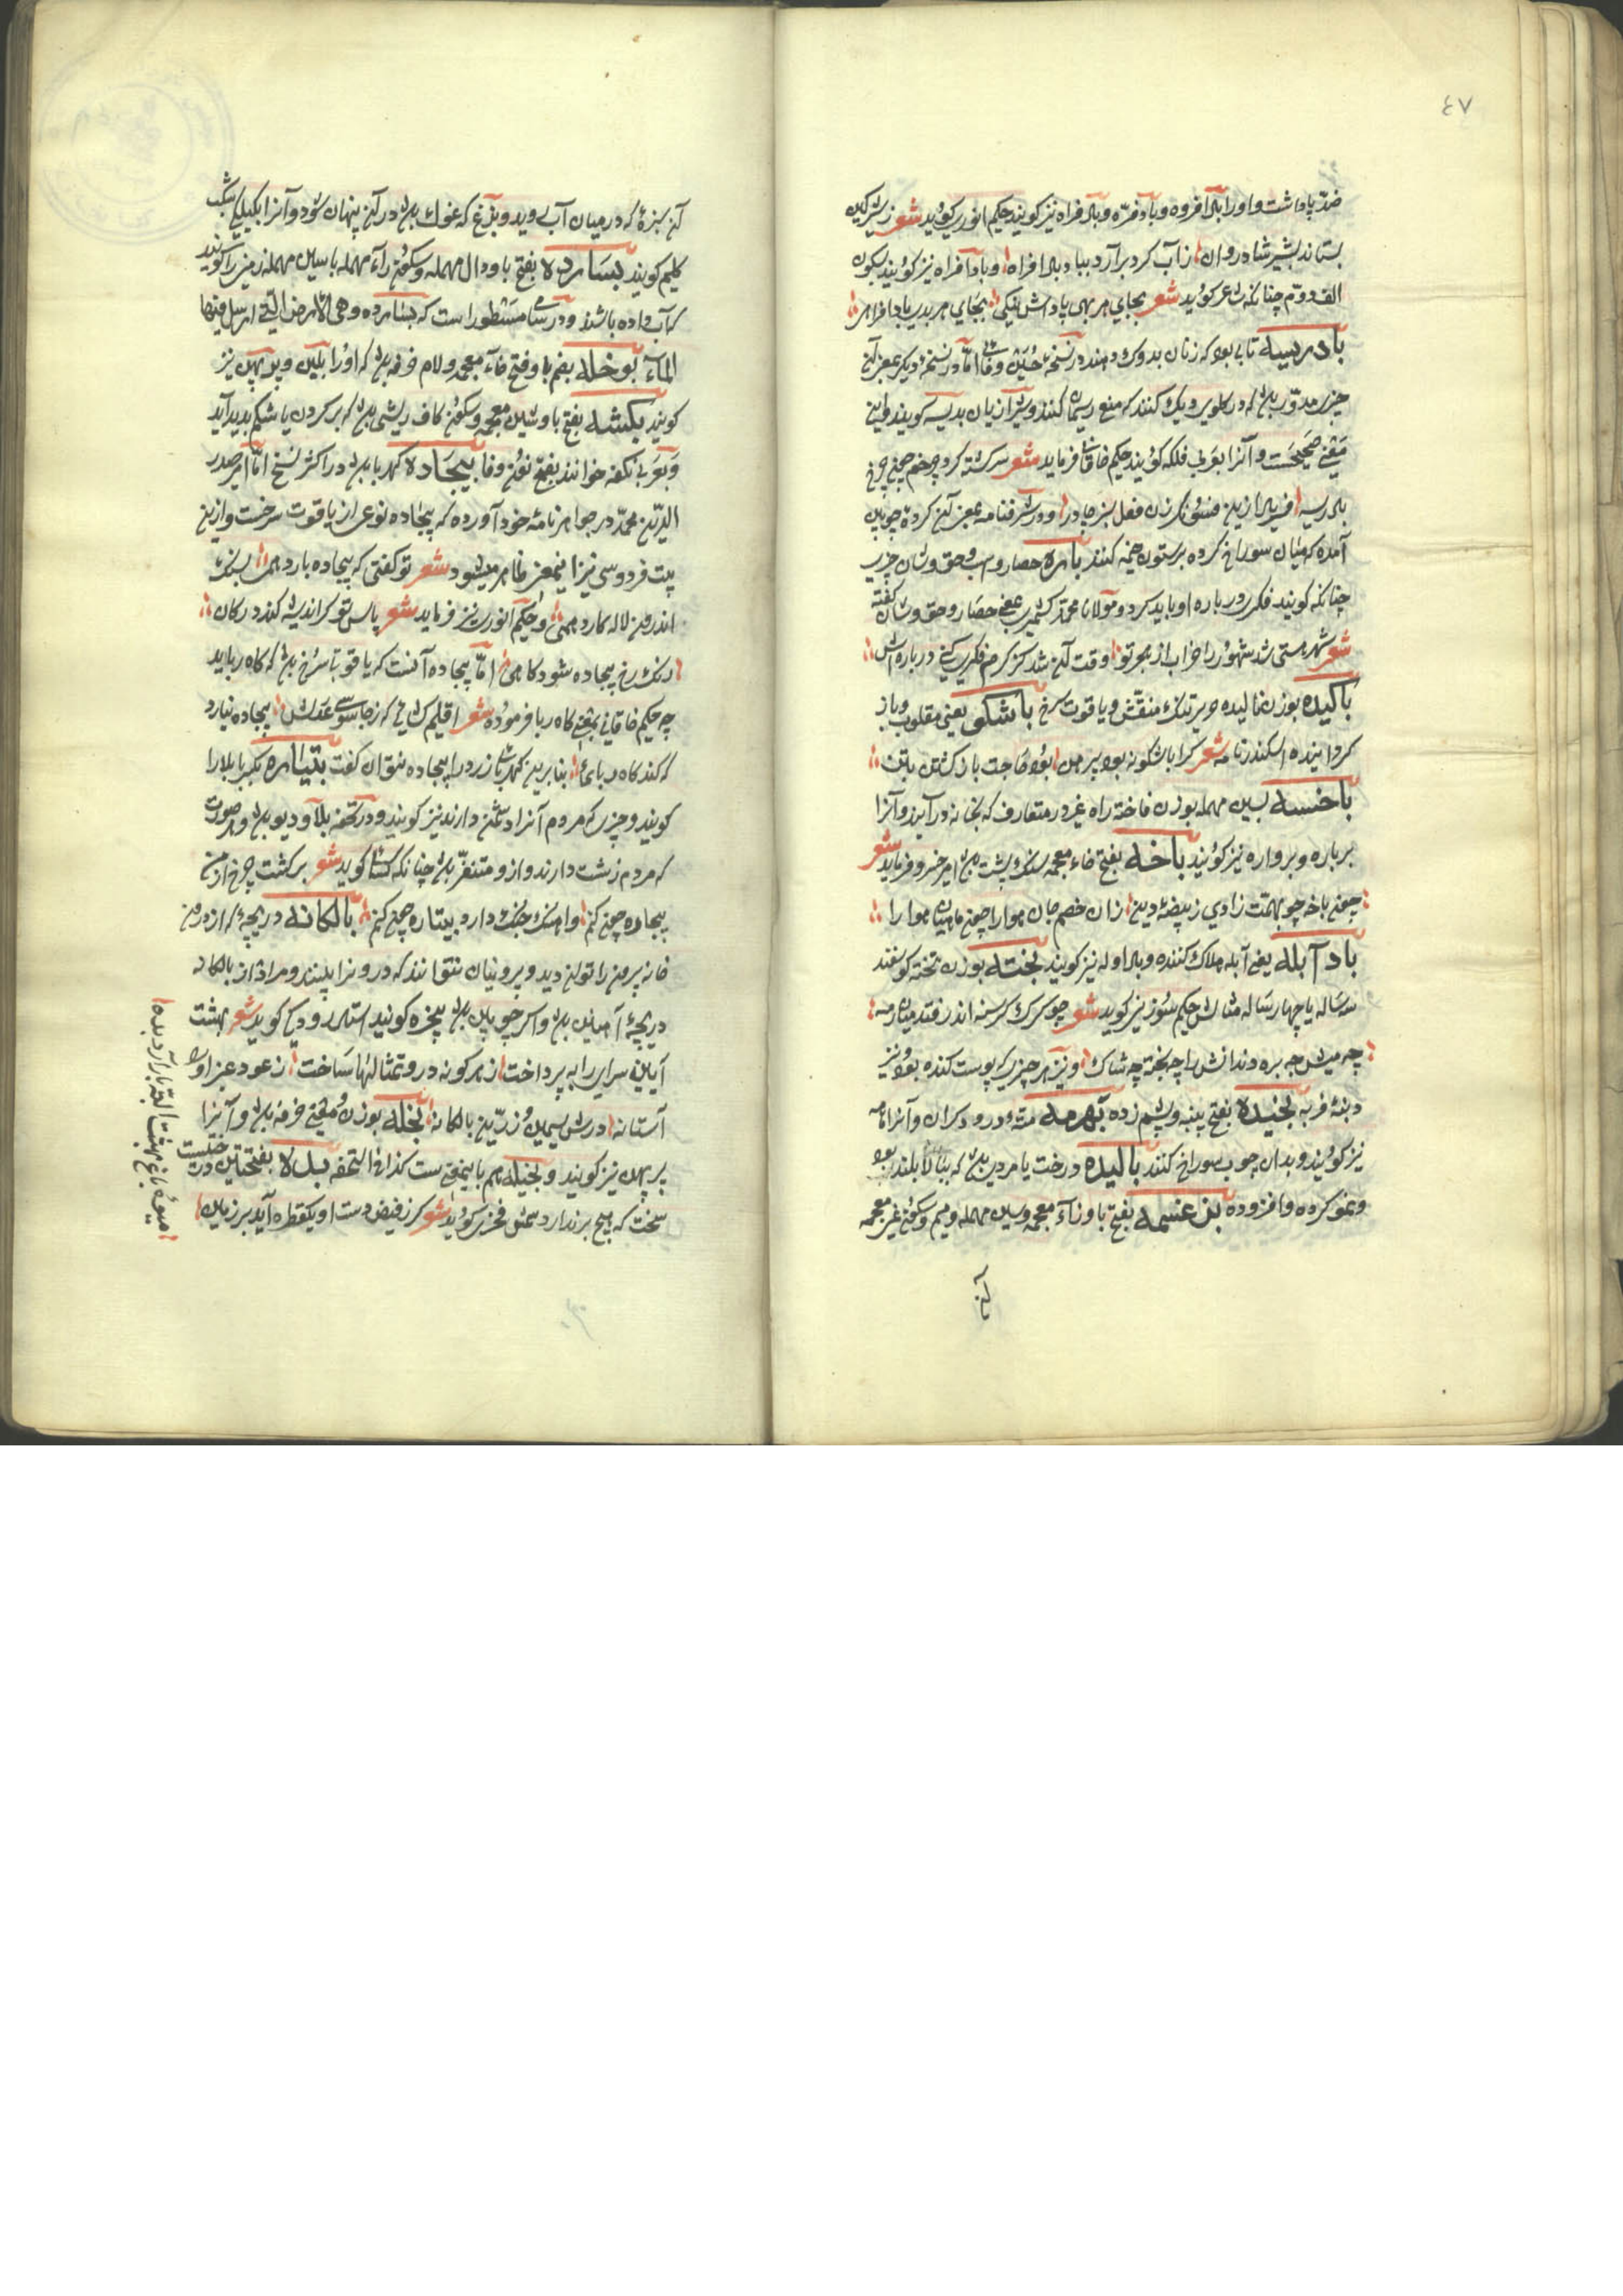 ٤٧
ضد پاداشت و اورا باد افروه و بادفره و باد فراه نیز کویند حکیم انوری کوید شعر
بستاند بشیر شادروان زاب کرد برآرد بباد باد افراه و بادآفراه نیز کویند بسکون
الف دوم چنانکه شاعر کوید شعر بجای هر بهی پاداش نیکی بجای هر بدی بادافراهی
بادریسه تایی بود که زنان بدوک دهند در نسخهٔ حسین وفائی اما در نسخهٔ دیکر بمعنی آن
چیزی مدور باشد که در کلوی دیک کنند که منع ریسمان کنند و شیرازیان بدیسه کویند و این
معنی صحیحست و آنرا بعربی فلکه کویند حکیم خاقانی فرماید شعر سرکشته کرد چرخم چون چرخ
بادریسه فریاد ازین فسونکر زن فعل سبز چادر و در شرفنامه بمعنی آن کرده چوبین
آمده که میان سوراخ کرده بر ستون خیمه کنند باره حصار و اسب و حق و شان چیزی
چنانکه کویند فکری در باره او باید کرد و مولانا محمد کشمیری بمعنی حصار و حق و شان کفته
شعر شهر هستی شد شهور را خراب از هجر تو وقت آن شد کز کرم فکری کنی در باره اش
باکیده بوزن مالیده حریر تنک منقش و یاقوت سرخ باشکی یعنی مقلوب و باز
کردانیده اسکندرنامه شعر کرا باشکونه بود پیرهن بود حاجت باز کشتن بتن
باخسه بسین مهمله بوزن فاخته راه غیر در متعارف که بخانه در آیند و آنرا
برباره و برواره نیز کویند باخه بفتح خاء معجمه سنک پشت باشد امیر خسرو فرماید شعر
چون باخه چو بهمت زادی ز بیضهٔ دین زان خصم جان هوارا چون ماهیان هوا را
باد آبله یعنی آبله هلاک کننده و باد اوله نیز کویند بخته بوزن تخته کوسفند
سه ساله یا چهار ساله مثالش حکیم سوزنی کوید شعر چو کرک کرسنه اندر فتد میان رمه
چه میش چه بره دندانش را چه بخته چه شاک و نیز هر چیزی که پوست کنده بود و نیز
دنبهٔ فربه بخیده بفتح پنبه و پشم زده بهرمه مته و درودکران و آنرا ماهه
نیز کویند و بدان چوب سوراخ کنند بالیده درخت یا مردی باشد که ببالا بلند بود
و نمو کرده و افزوده بزغسمه بفتح با و زاء معجمه و سین مهمله و میم و سکون غین معجمه
آن
آن سبزهٔ که در میان آب روید و بزغ که غوک باشد در آن پنهان شود و آنرا بکیلی
کلیم کویند بسارده بفتح با و دال مهمله و سکون راء مهمله با سین مهمله زمینی را کویند
که آب داده باشند و در سامی مسطور است که بسارده وهی الارض التی ارسل فیها
الماء بوخله بضم با و فتح خاء معجمه و لام خرفه باشد که اورا بلین و بوبهن نیز
کویند بکشه بفتح با و شین معجمه و سکون کاف ریشی باشد که بر کردن یا شکم پدید آید
و بعربی نکفه خوانند بفتح نون و فا بیجاده کهربا باشد در اکثر نسخ اما امیر صدر
الدین محمد در جواهرنامهٔ خود آورده که بیجاده نوعی از یاقوت سرخست و ازین
بیت فردوسی نیز این معنی ظاهر میشود شعر تو کفتی که بیجاده بارد همی بسنک
اندرون لاله کارد همی و حکیم انوری نیز فرماید شعر پاس تو کر اندیشه کند در کان
رنک رخ بیجاده شود کاهی اما بیجاده آنست که یاقوتی سرخ باشد که کاه رباید
چه حکیم خاقانی بمعنی کاه ربا فرموده شعر اقلیم کشائی که ز جاسوسی عدلش بیجاده نیارد
که کند کاه ربائی بنا برین کهربای زرد را بیجاده نتوان کفت بتیاره بکسر با بلا را
کویند و چیزی که مردم آنرا دشمن دارند نیز کویند و در تحفه بلا و دیو باشد و هر صورت
که مردم زشت دارند و ازو متنفر باشند چنانکه کسائی کوید شعر برکشت چرخ از من
بیچاره چون کنم و اهنک جنک دارد بیتاره چون کنم بالکانه دریچهٔ که از درون
خانه بیرون را توان دید و بیرونیان نتوانند که درونرا بینند و مراد از بالکانه
دریچهٔ آهنین باشد و اکر چوبین باشد پنجره کویند استاد رودکی کوید شعر بهشت
آیین سرای را بپرداخت ز هر کونه در و تمثالها ساخت ز عود عنبر او را
آستانه درش سیمین و زرین بالکانه بخله بوزن و معنی خرفه باشد و آنرا
برپهن نیز کویند و بخیله هم باین معنی ست کذا فی التحفه بدله بفتحتین درختیست
سخت که هیچ بر ندارد شمس فخری کوید شعر کر ز فیض دست او یکقطره آید بر زمین
میوهٔ باغ بهشت البته بار آرد بده